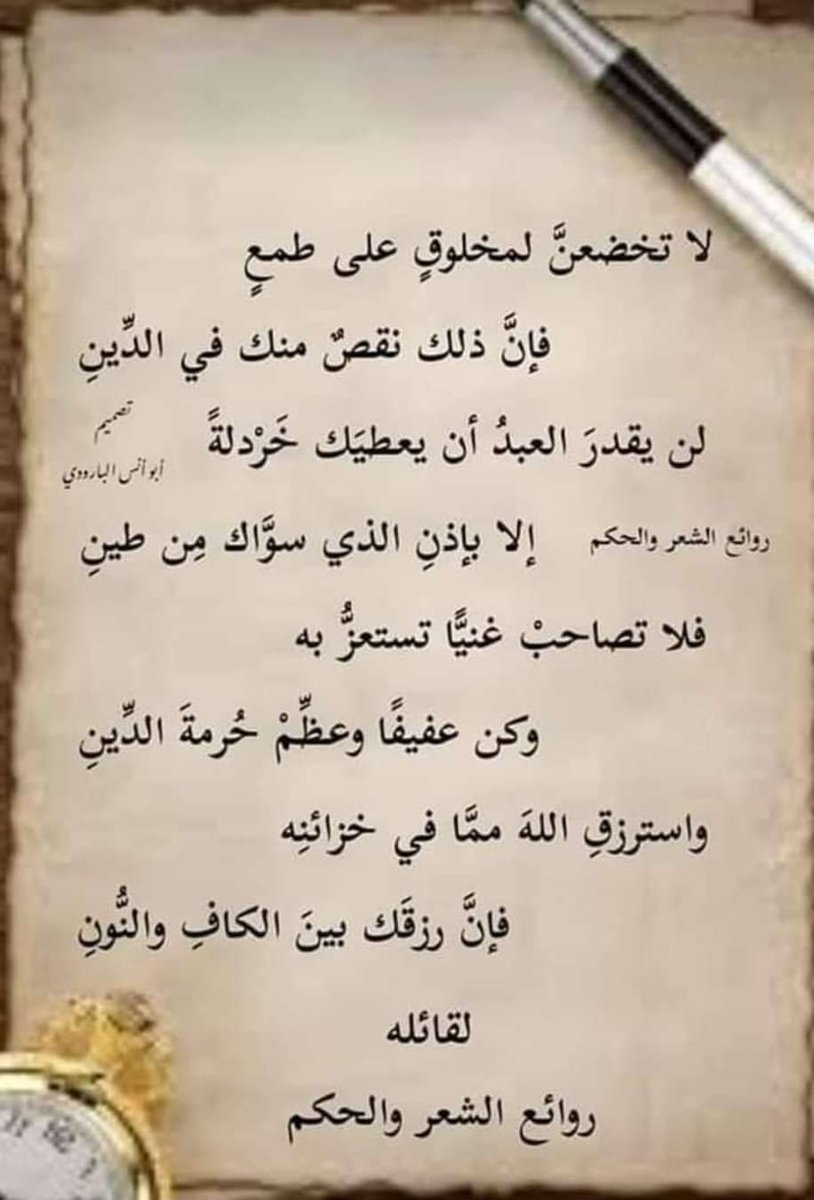 لا تخضعنَّ لمخلوقٍ على طمعٍ
فإنَّ ذلك نقصٌ منك في الدِّينِ
لن يقدرَ العبدُ أن يعطيَك خَرْدلةً
تصميم
أبو أنس البارودي
إلا بإذنِ الذي سوَّاك مِن طينِ
روائع الشعر والحكم
فلا تصاحبْ غنيًّا تستعزُّ به
وكن عفيفًا وعظِّمْ حُرمةَ الدِّينِ
واسترزقِ اللهَ ممَّا في خزائنِه
فإنَّ رزقَك بينَ الكافِ والنُّونِ
لقائله
روائع الشعر والحكم